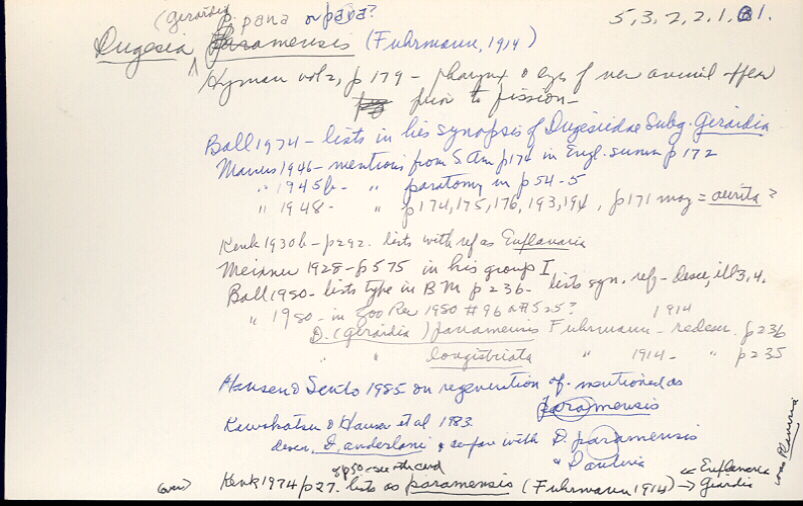 (Girardia) p. pana or para?
5,3,2,2,1,1.
Dugesia paramensis (Fuhrmann, 1914)
Hyman vol 2, p 179 - pharynx & eyes of new animal appear
prior to fission -
Ball 1974 - lists in his synopsis of Dugesiidae Subg. Girardia
Marcus 1946 - mentions from S. Am p 174 in Engl. summ p 172
" 1945b - " paratomy in p 54-5
" 1948 - " p 174, 175, 176, 193, 194, p 171 may = aurita?
Kenk 1930b - p 292. lists with ref as Euplanaria
Meixner 1928 - p 575 in his group I
Ball 1980 - lists type in BM p 236 - lists syn. refs - desc, ill 3, 4.
" 1980 - in Zoo Rec 1980 #96 n# 525?
1914
D. (Girardia) paramensis Fuhrmann - redescr. p 236
" " longistriata " 1914 - " p 235
1985 on regeneration of - mentioned as
paramensis
Kawakatsu & Hauser et al 1983.
descr. D. anderlani & compare with D. paramensis
" D
(over) Kenk 1974 p 27. lists as paramensis (Fuhrmann 1914) → Girardia
& p 50 - see other card
Euplanaria
was Planaria